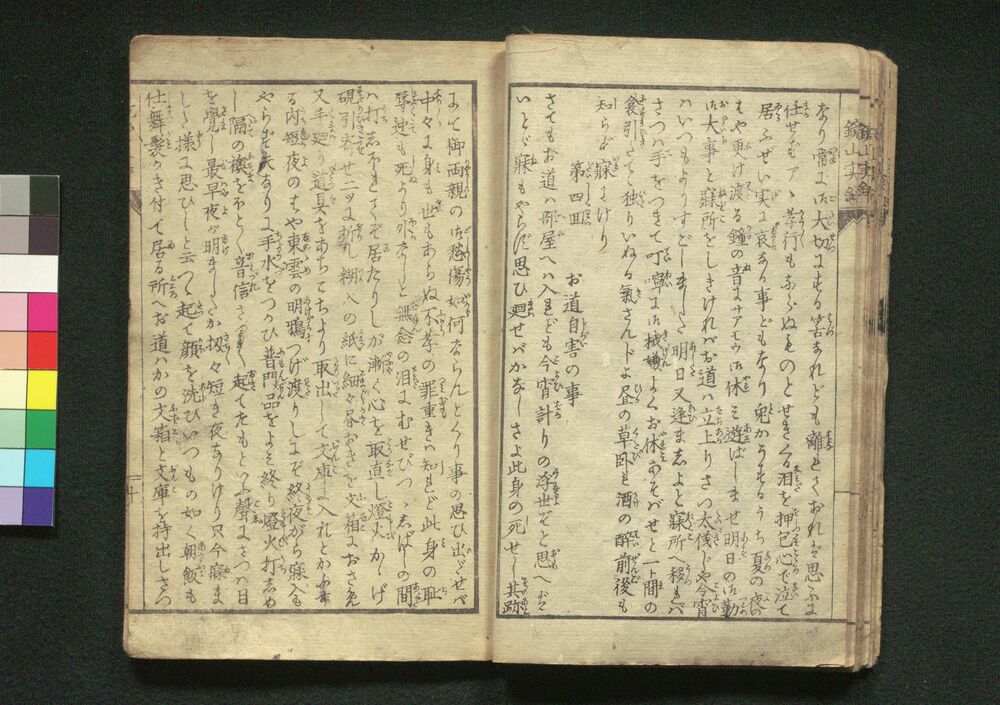 鏡山実録
なり常に御大切にする筈なれども離とくおれば思ふに
任せずアヽ孝行もふらぬものとせきくる泪を押包心で泣て
居ふぜい実に哀なり事どもなり兎かうするうち夏の夜の
はや更け渡る鐘の音にサアモウ御休み遊ばしませ明日の御勤
御大事と寐所をしきければお道ハ立上りさつ太儀じや今宵
ハいつもよりすごしました明日又逢ましよと寐所へ移れば
さつハ手をつきて丁寧に御機嫌よくお休あそバせと一ト間の
襖引立て独りいぬる氣さんトよ昼の草臥も酒の酔前後も
知らず寐にけり
第四回　お道自害の事
さてもお道ハ部屋へハ入れども今宵計りの浮世ぞと思へバ
いとゞ寐もやらず思ひ廻せバかなしさよ此身の死せし其跡
にて御両親の御愁傷如何ならんとくり事の思ひ出どせバ
中々に身も世もあらぬ不孝の罪重きハ知れど此身の恥
辱迚も死より外なしと無念の泪にむせびつゝしばしの間
ハ打しほれてぞ居たりしが漸く心を取直し燈火かゝげ
硯引寄せ二ツに折し糊入の紙に細々昼おきを文箱におさえ
又手廻り道具をあちこちより取出して文庫に入れとかふす
る内短夜のはや東雲の明鴉つげ渡りしまで終夜がら寐入も
やらず夫なりに手水をつかひ普門品をよみ終り燈火打しめ
し隔の襖をほとく音信さつ〳〵起てたもといふ聲にさつハ目
を覚し最早夜が明ましたか扨々短き夜なりけり只今寐ま
しゝ様に思ひしと云つゝ起て顔を洗ひいつもの如く朝飯も
仕舞髪かき付て居る所へお道ハかの文箱と文庫を持出しさつ